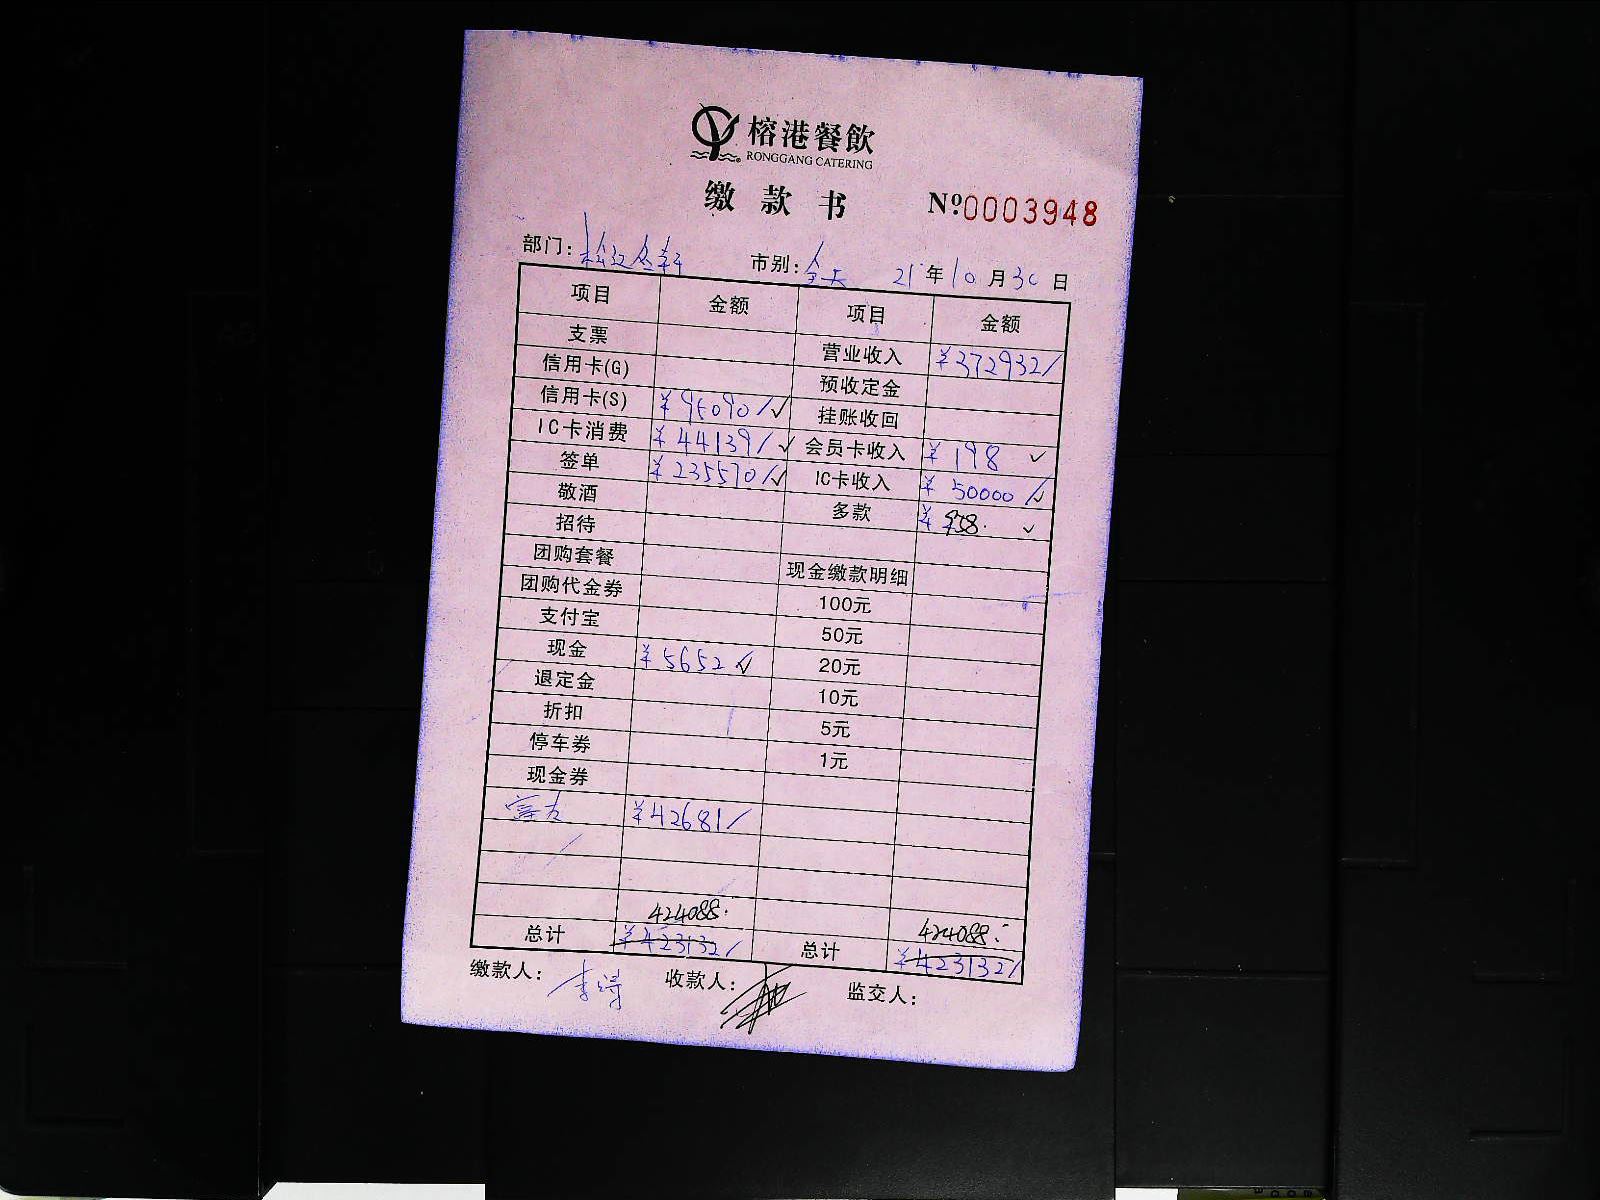 榕港餐飲
RONGGANG CATERING
缴款书 Nº0003948
部门: 市别: 全天 21年10月30日
项目 金额 项目 金额
支票 营业收入 ¥372932/
信用卡(G) 预收定金
信用卡(S) ¥95090/✓ 挂账收回
IC卡消费 ¥44139/✓ 会员卡收入 ¥198 ✓
签单 ¥235570/✓ IC卡收入 ¥50000/✓
敬酒 多款 ¥958. ✓
招待
团购套餐 现金缴款明细
团购代金券 100元
支付宝 50元
现金 ¥5652✓ 20元
退定金 10元
折扣 5元
停车券 1元
现金券
¥42681/
424088. 424088.
总计 ¥423132/ 总计 ¥423132/
缴款人: 收款人: 监交人: